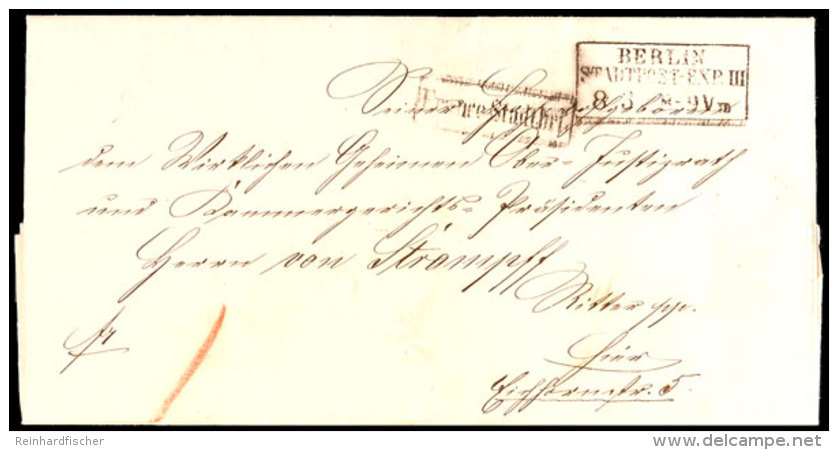 BERLIN
STADTPOST-EXP. III
8 3 8-9 V
Seiner Hochwohlgeboren
dem Wirklichen Geheimen Ober-Justizrath
und Kammergerichts-Präsidenten
Herrn von Strampff
Ritter pp.
fr
hier
Eichhornstr. 5.
Reinhardfischer
delcampe.net